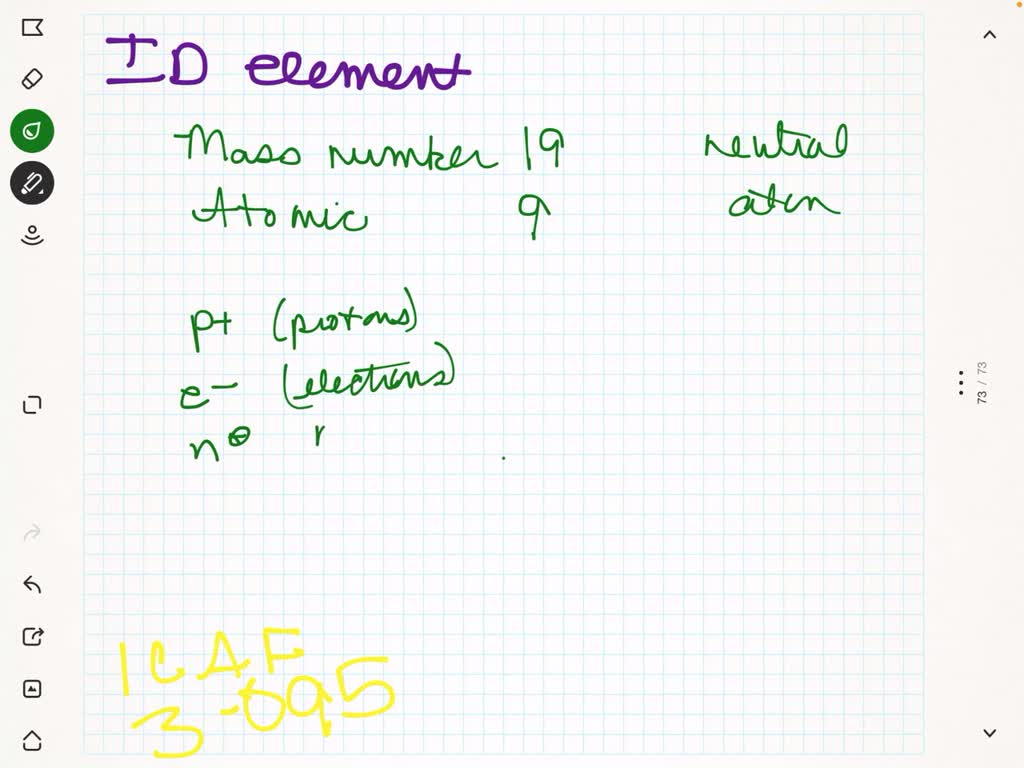 ID element
Mass number 19 neutral
Atomic 9 atom
p+ (protons)
e- (electrons)
n⊖ r
73 / 73
1CAF
3-095